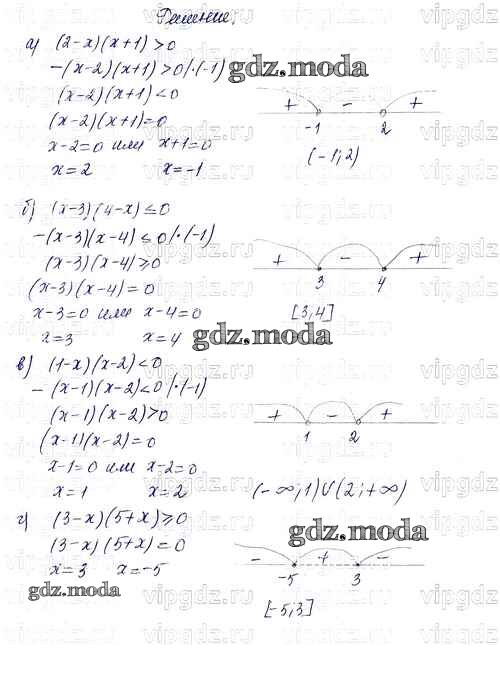 Решение.
а) (2-x)(x+1)>0
-(x-2)(x+1)>0 |·(-1)
(x-2)(x+1)<0
(x-2)(x+1)=0
x-2=0 или x+1=0
x=2 x=-1
+ - +
-1 2
(-1;2)
gdz.moda
б) (x-3)(4-x)≤0
-(x-3)(x-4)≤0 |·(-1)
(x-3)(x-4)≥0
(x-3)(x-4)=0
x-3=0 или x-4=0
x=3 x=4
+ - +
3 4
[3;4]
gdz.moda
в) (1-x)(x-2)<0
-(x-1)(x-2)<0 |·(-1)
(x-1)(x-2)>0
(x-1)(x-2)=0
x-1=0 или x-2=0
x=1 x=2
+ - +
1 2
(-∞;1)∪(2;+∞)
г) (3-x)(5+x)≥0
(3-x)(5+x)=0
x=3 x=-5
- + -
-5 3
[-5;3]
gdz.moda
gdz.moda
vipgdz.ru